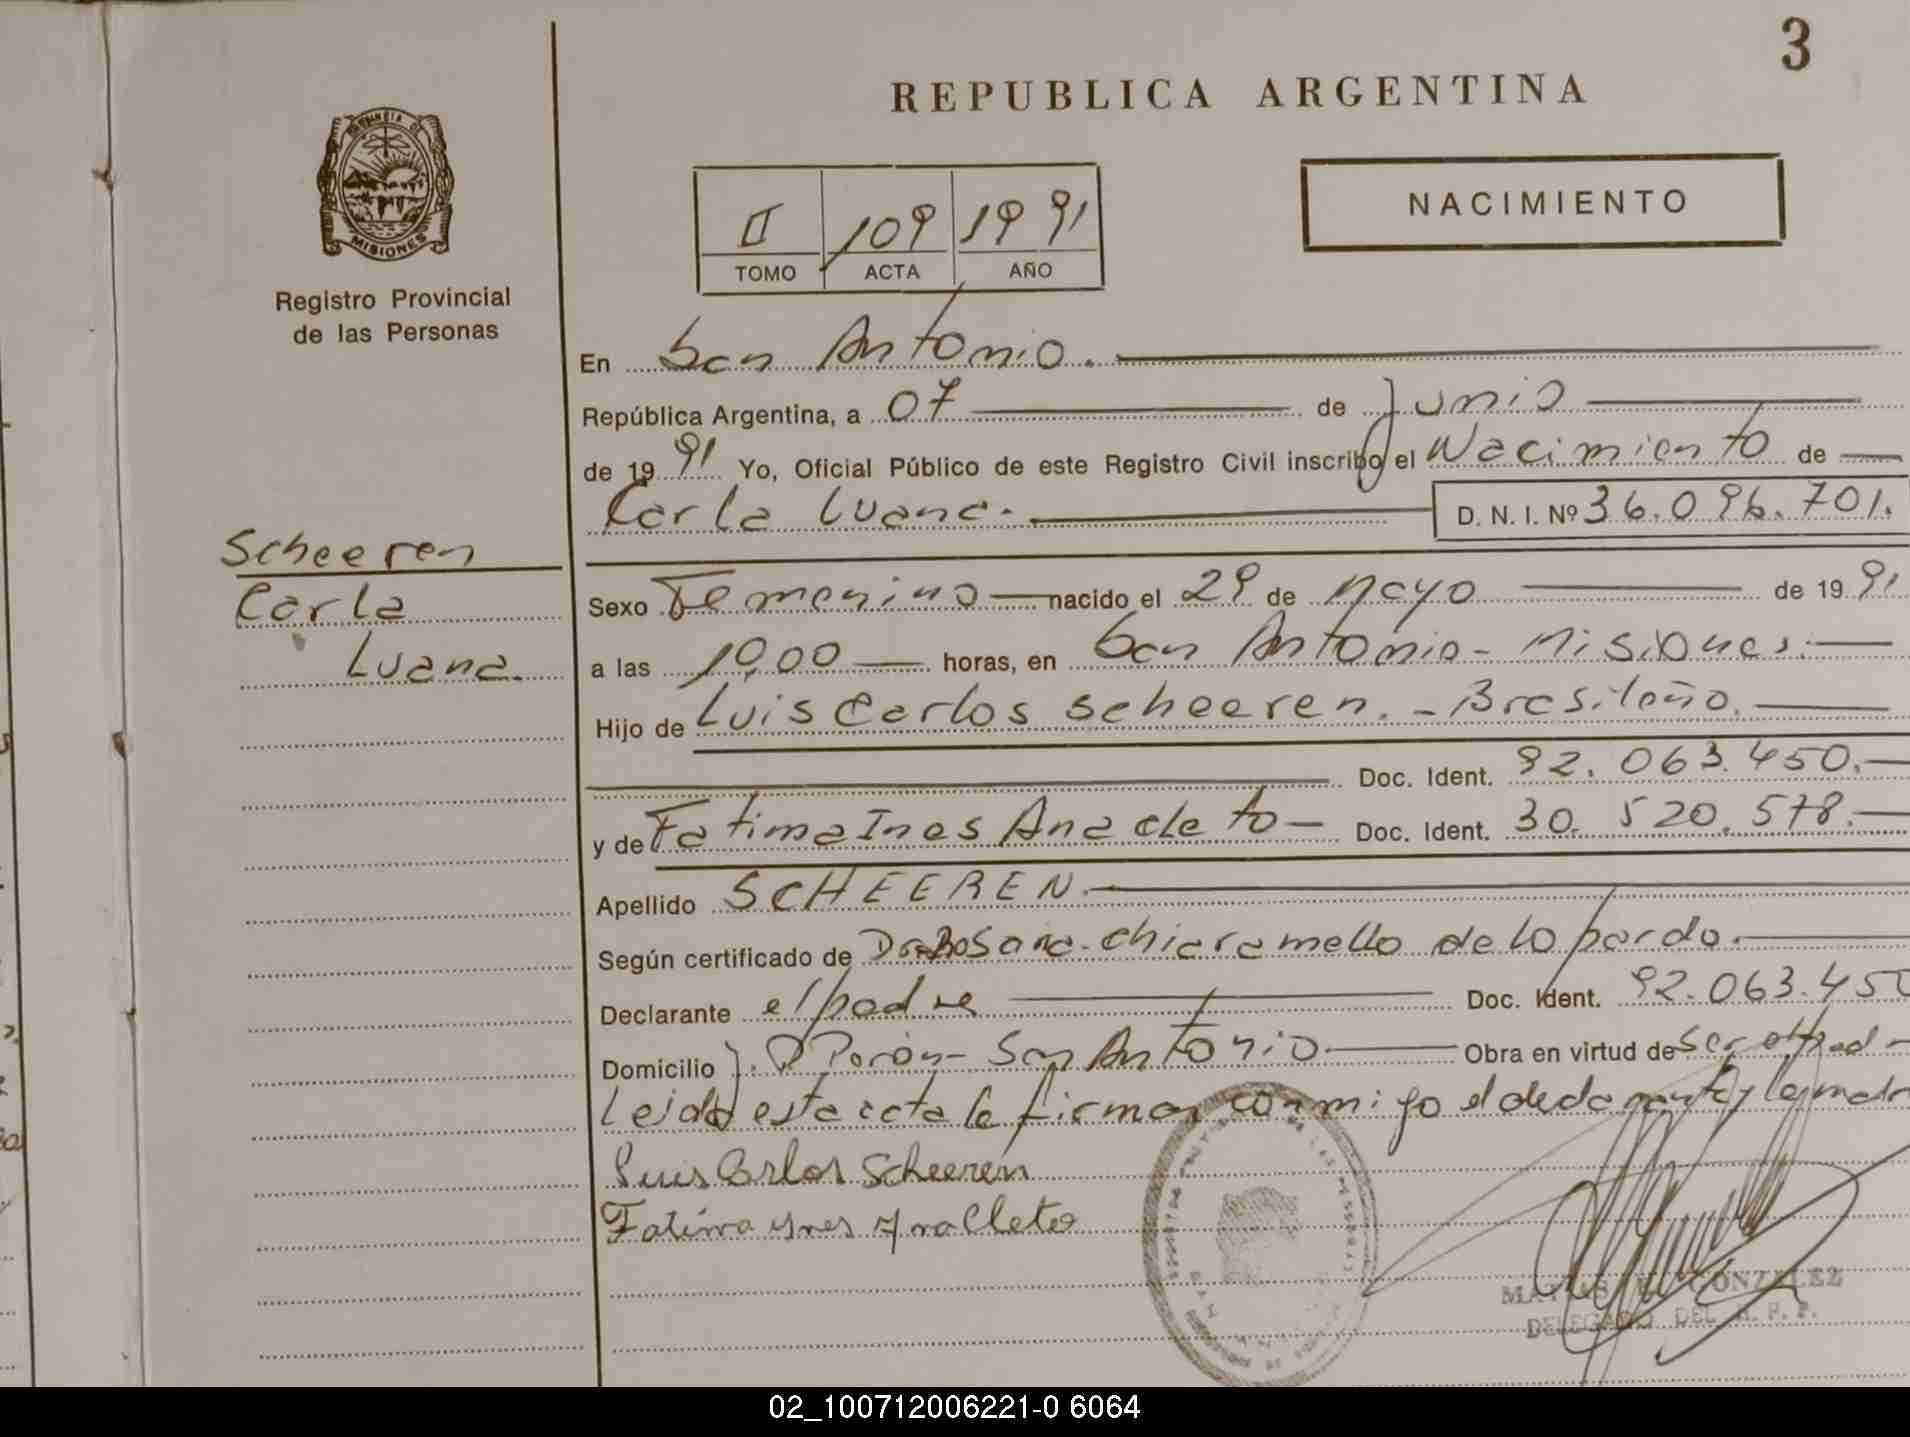 3
REPUBLICA ARGENTINA
NACIMIENTO
II 109 1991
TOMO ACTA AÑO
PROVINCIA DE
MISIONES
Registro Provincial
de las Personas
En San Antonio.
República Argentina, a 07 de Junio
de 19 91 Yo, Oficial Público de este Registro Civil inscribo el Nacimiento de
Carla Luana. D. N. I. Nº 36.096.701.
Scheeren
Carla
Luana.
Sexo Femenino nacido el 29 de Mayo de 19 91
a las 10,00 horas, en San Antonio - Misiones.
Hijo de Luis Carlos Scheeren. - Brasileño.
Doc. Ident. 92.063.450.
y de Fatima Ines Anacleto Doc. Ident. 30.520.578.
Apellido SCHEEREN.
Según certificado de Dra Rosana Chiaramello de Lopardo.
Declarante el padre Doc. Ident. 92.063.450
Domicilio J. D Perón - San Antonio Obra en virtud de ser el pad-
Leida esta acta la firman conmigo el declarante y la madre
Luis Carlos Scheeren
Fatima Ynes Analleto
GONZALEZ
DELEGADO DEL R. P. P.
02_100712006221-0 6064